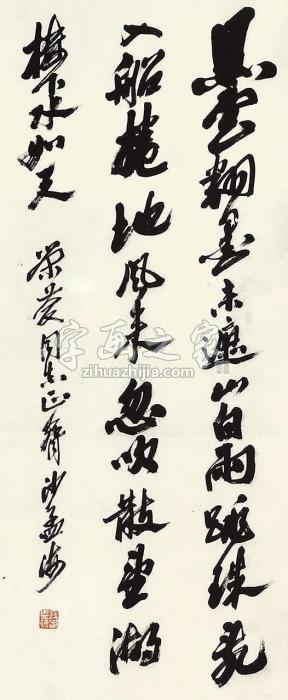 黑雲翻墨未遮山白雨跳珠亂
入船捲地風来忽吹散望湖
樓下水如天 榮 同志正 沙孟海
字画之家
zihuazhijia.com